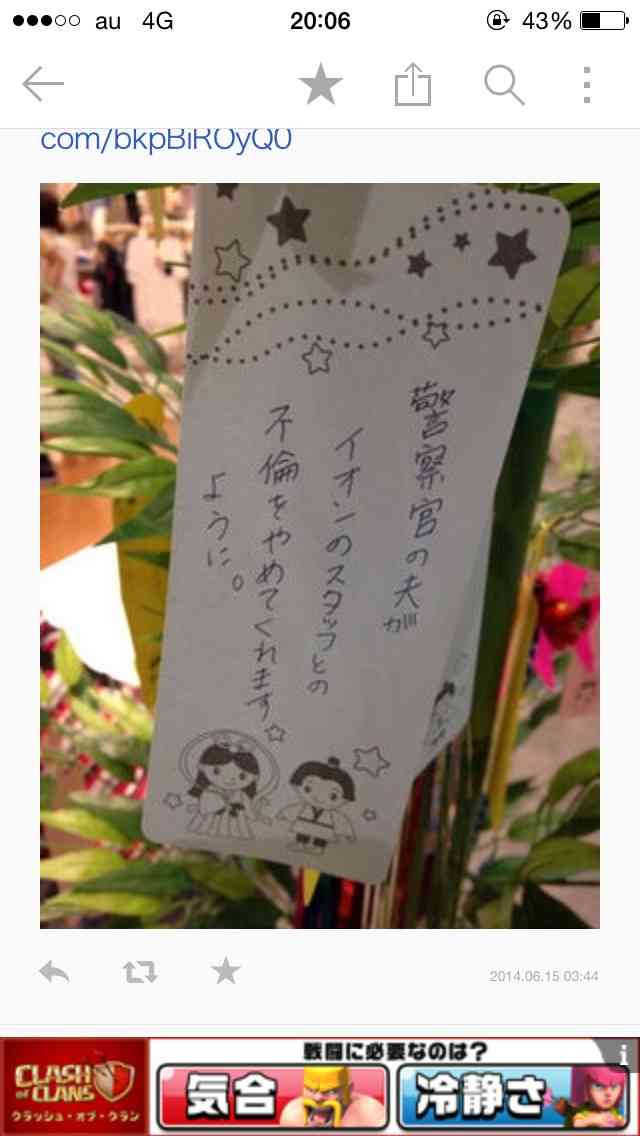 au 4G 20:06 43%
com/bkpBiROyQ0
警察官の夫が
イオンのスタッフとの
不倫をやめてくれます
ように。
2014.06.15 03:44
戦闘に必要なのは?
i
CLASH of CLANS
クラッシュ・オブ・クラン
気合
冷静さ